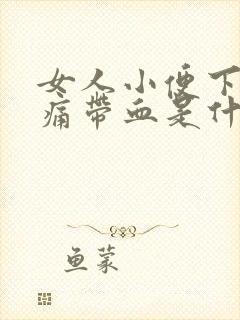 女人小便下
痛带血是什
鱼蒙